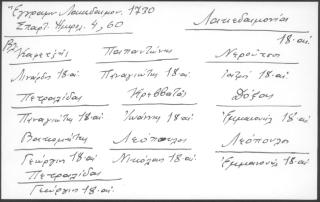 Έγγραφον Λακεδαιμον. 1730
Σπαρτ. Ημερολ. 4, 60
Λακεδαιμονία
18 αι.
Βλ.
Καρετζᾶς Παπαντώνης Νερούτσος
Λινάρδος 18 αι. Παναγιώτης 18 αι. 18 αι.
Πετραλίδας Κρεββατᾶς Δόξας
Παναγιώτης 18 αι. Ἰωάννης 18 αι. Ἐμμανουήλ 18 αι.
Λεόπουλος Λεόπουλος
Γεώργιος 18 αι. Νικόλαος 18 αι. Ἐμμανουήλ 18 αι.
Πετραλίδας
Γεώργιος 18 αι.